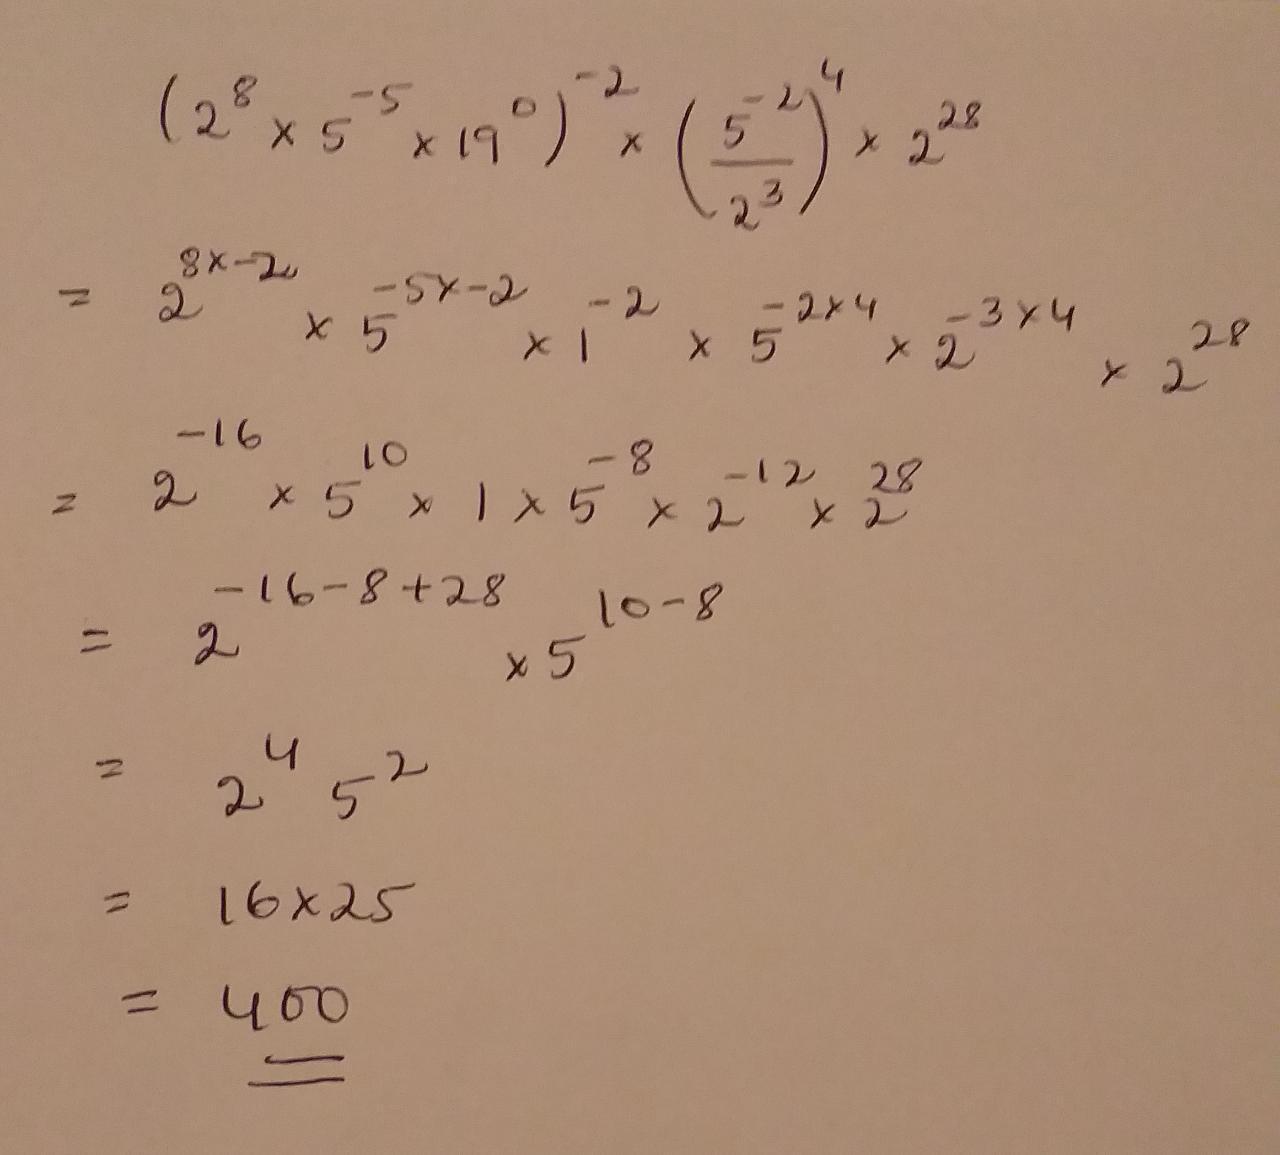 (2⁸ × 5⁻⁵ × 19⁰)⁻² × (5⁻²/2³)⁴ × 2²⁸
= 2⁸ˣ⁻² × 5⁻⁵ˣ⁻² × 1⁻² × 5⁻²ˣ⁴ × 2⁻³ˣ⁴ × 2²⁸
= 2⁻¹⁶ × 5¹⁰ × 1 × 5⁻⁸ × 2⁻¹² × 2²⁸
= 2⁻¹⁶⁻⁸⁺²⁸ × 5¹⁰⁻⁸
= 2⁴ 5²
= 16×25
= 400